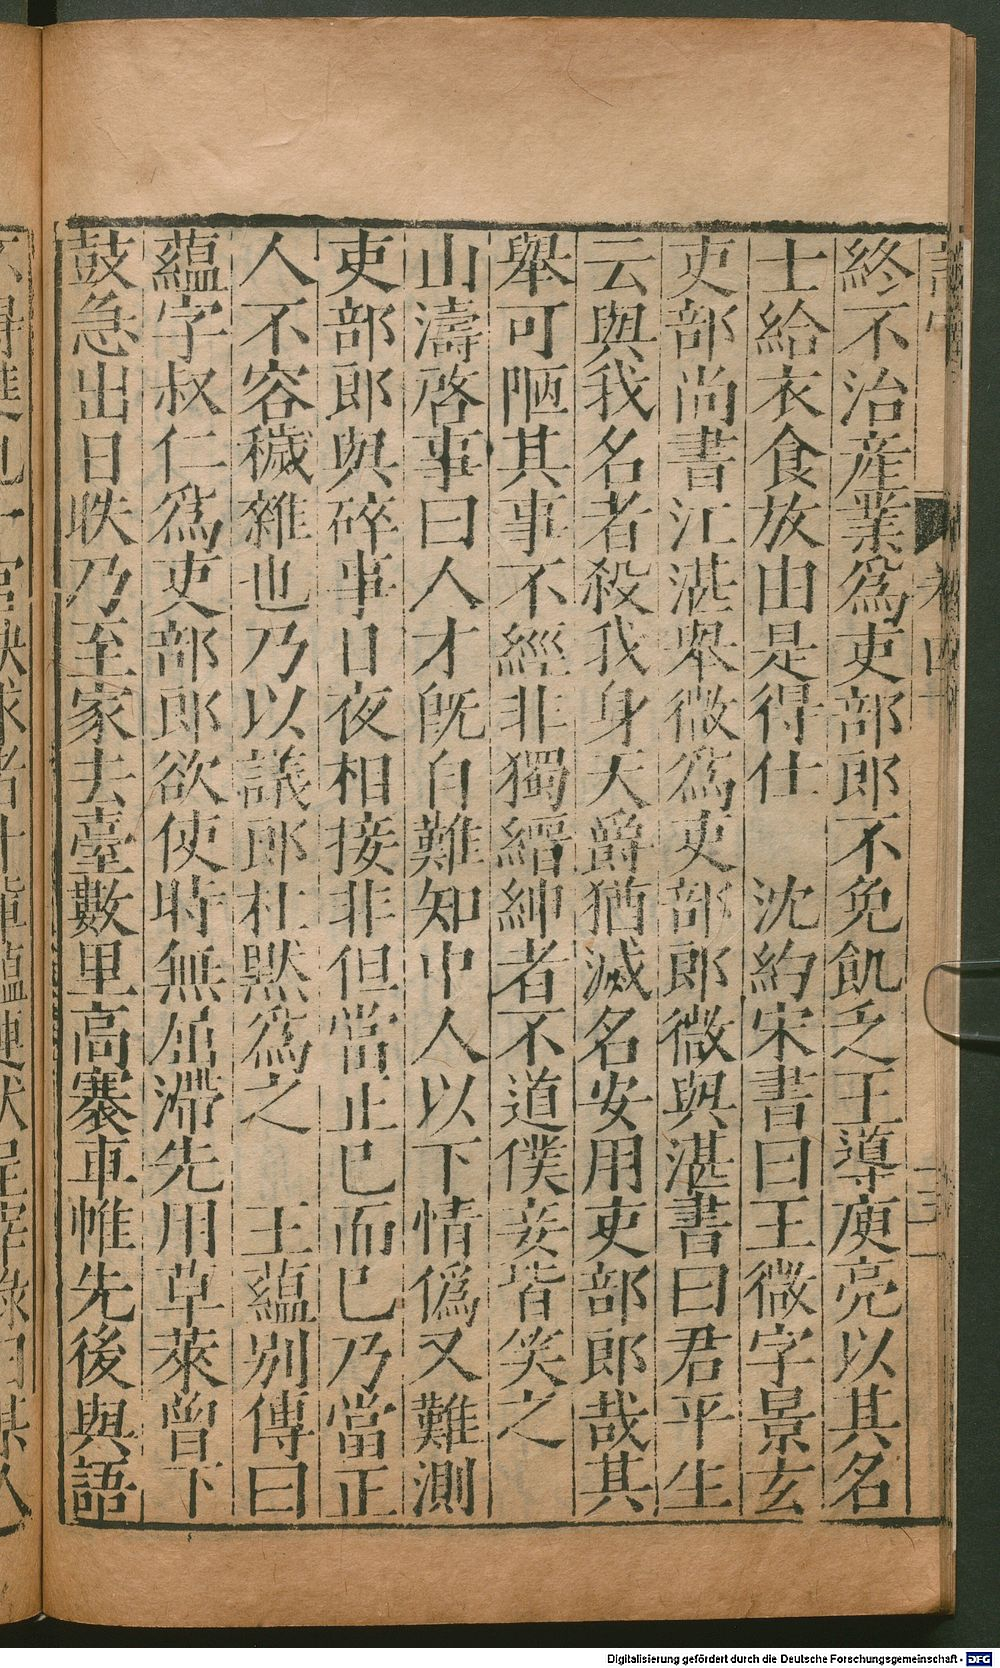 終不治産業爲吏部郎不免飢乏王導庾亮以其名
士給衣食放由是得仕　沈約宋書曰王微字景玄
吏部尚書江湛舉微爲吏部郎微與湛書曰君平生
云與我名者殺我身天爵猶滅名安用吏部郎哉其
舉可陋其事不經非獨搢紳者不道僕妾皆笑之
山濤啓事曰人才旣自難知中人以下情僞又難測
吏部郎與碎事日夜相接非但當止已而已乃當正
人不容穢雜也乃以議郎杜默爲之　王蘊別傳曰
蘊字叔仁爲吏部郎欲使時無屈滯先用草萊曾下
鼓急出日昳乃至家去臺數里高褰車帷先後與語
Digitalisierung gefördert durch die Deutsche Forschungsgemeinschaft - DFG